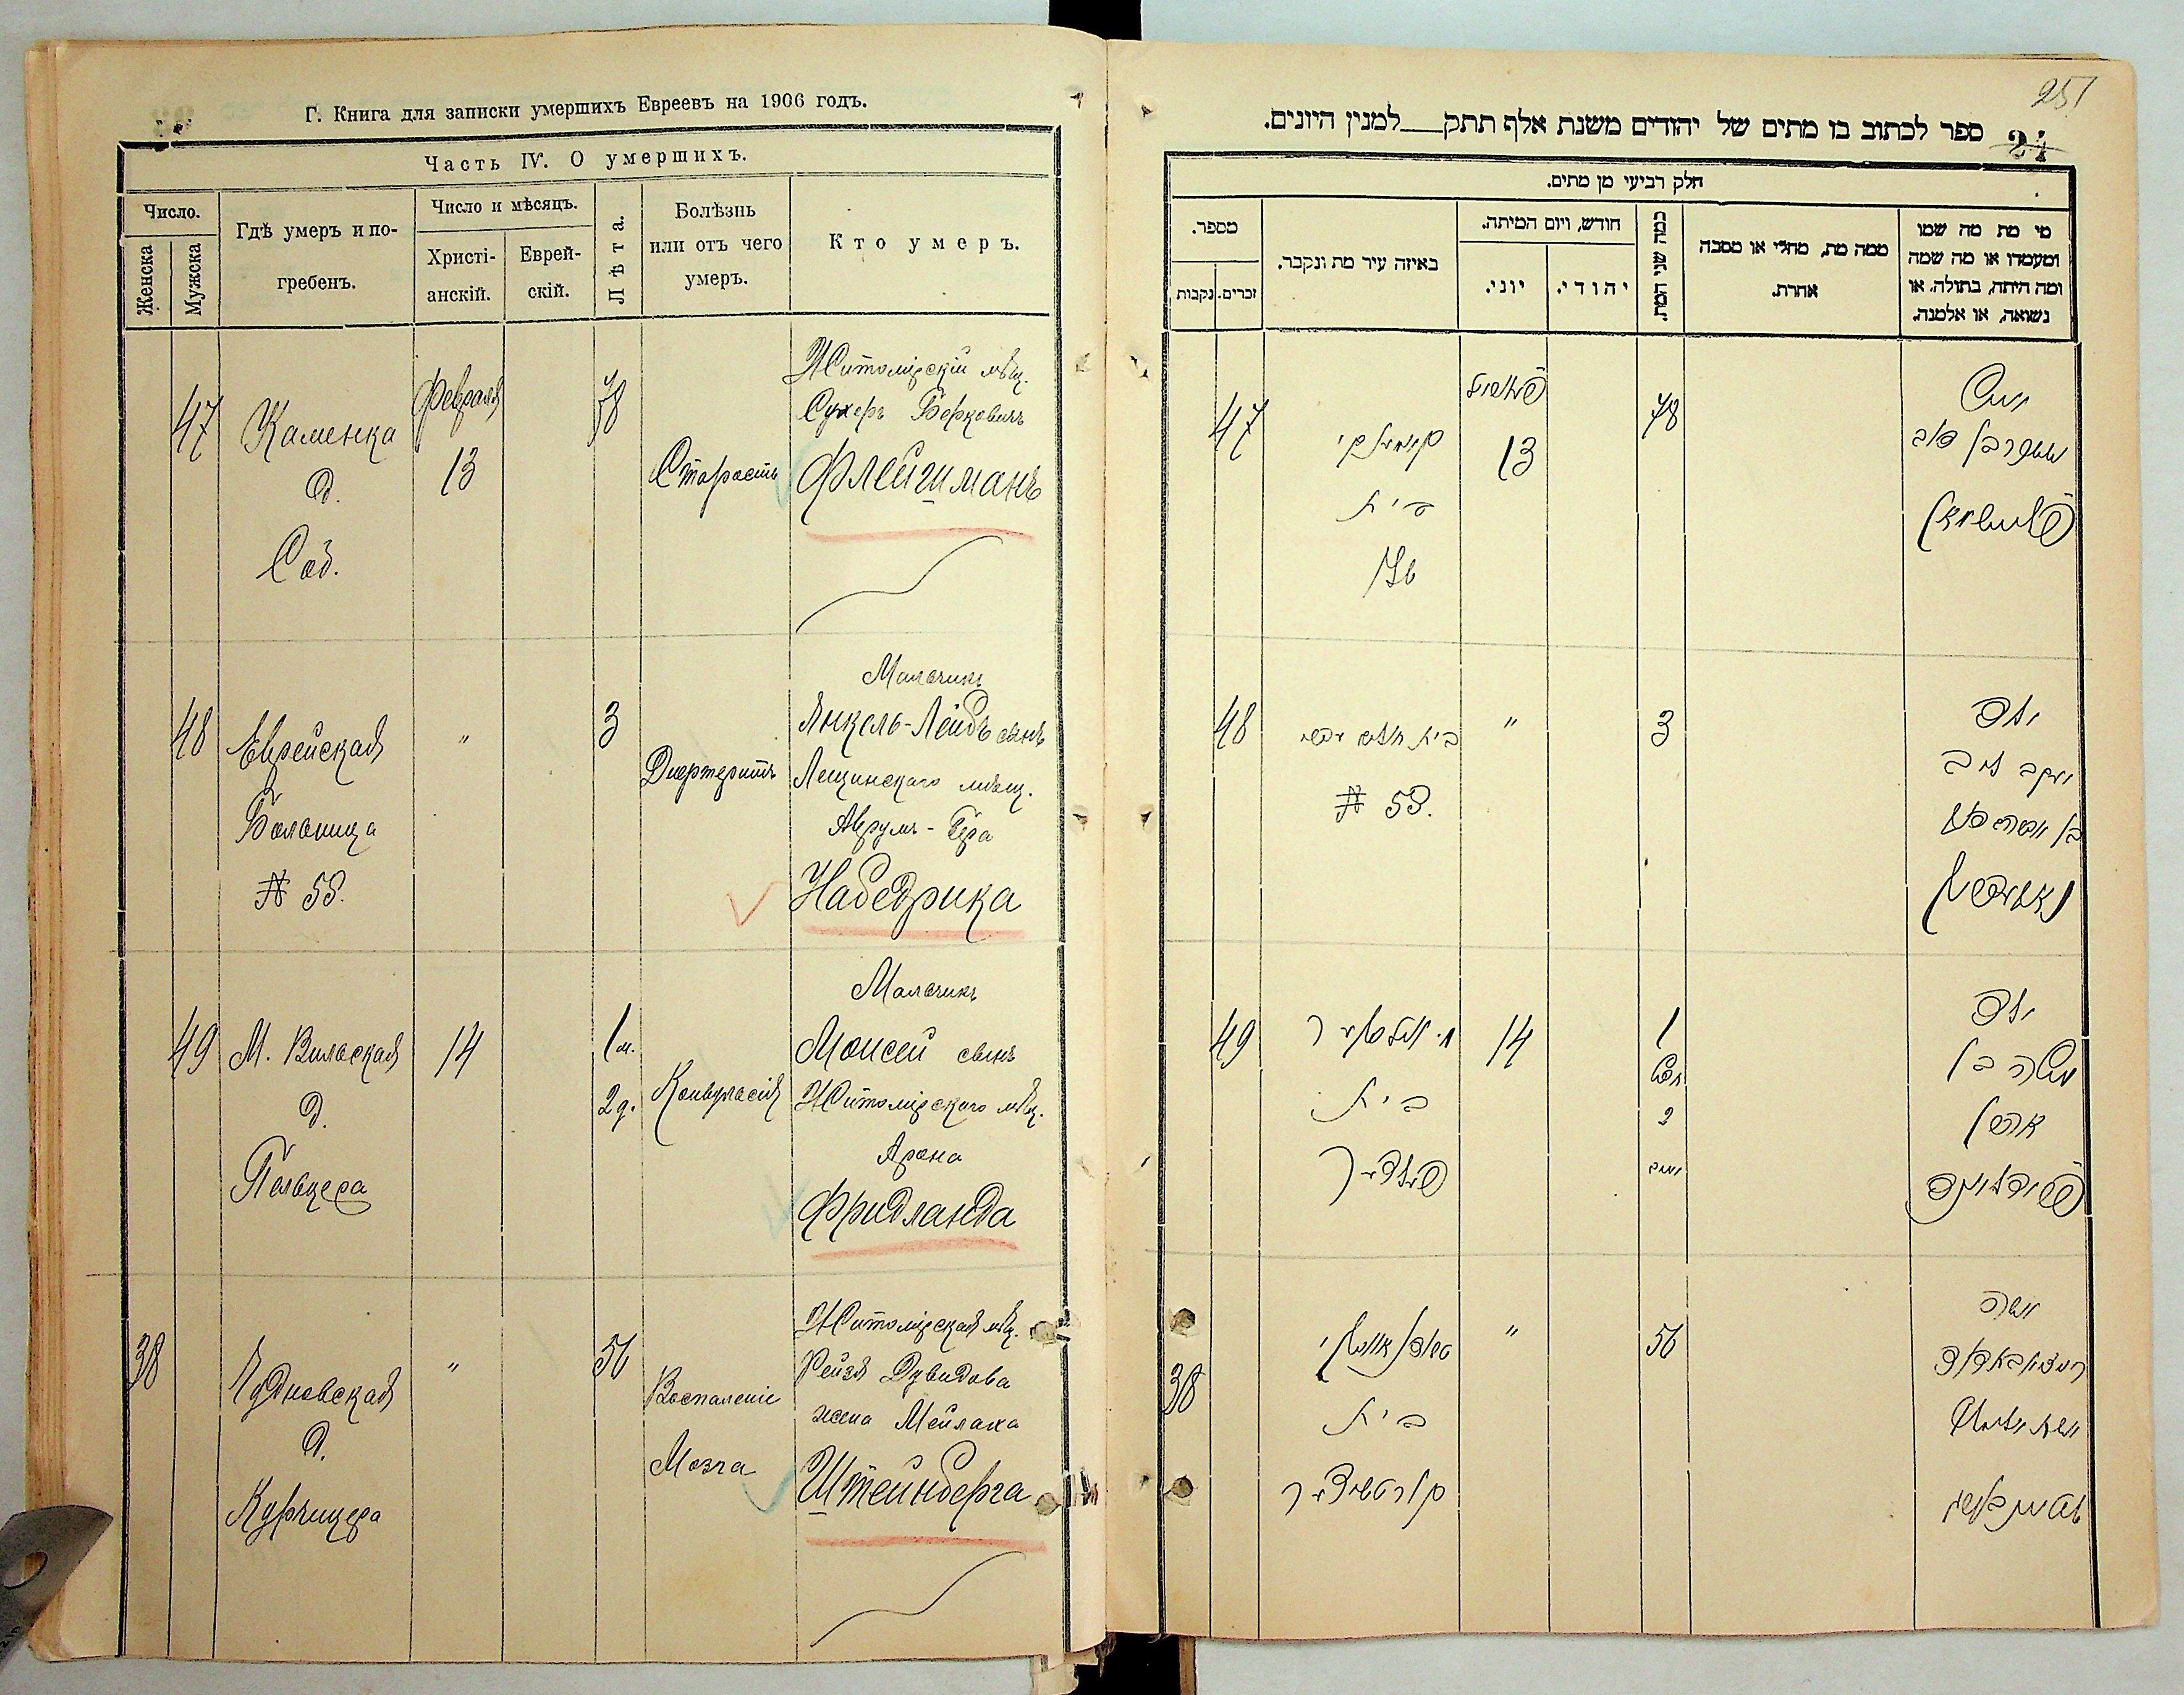 Г. Книга для записки умершихъ Евреевъ на 1906 годъ.
Часть IV. О умершихъ.
Число.
Женска
Мужска
Гдѣ умеръ и по-
гребенъ.
Число и мѣсяцъ.
Христі-
анскій.
Еврей-
скій.
Лѣта.
Болѣзнь
или отъ чего
умеръ.
Кто умеръ.
47
Каменка
д.
Соб.
Февраля
13
78
Старость
Житомірскій мѣщ.
Сухеръ Берковичъ
Флейшманъ
48
Еврейская
Больница
№ 53.
"
3
Дифтеритъ
Мальчикъ
Янкель-Лейбъ сынъ
Лещинскаго мѣщ.
Аврумъ-Бера
Набедрика
49
М. Вильская
д.
Гельцера
14
1 м.
2 д.
Конвульсія
Мальчикъ
Моисей сынъ
Житомірскаго мѣщ.
Арона
Фридланда
38
Чудновская
д.
Курчицера
"
56
Воспаленіе
Мозга
Житомірская мѣщ.
Рейзя Дувидова
жена Мейлаха
Штейнберга
251
24
ספר לכתוב בו מתים של יהודים משנת אלף תתק למנין היונים.
חלק רביעי מן מתים.
מספר.
זכרים.
נקבות
באיזה עיר מת ונקבר.
חודש, ויום המיתה.
יוני.
יהודי.
כמה שני המת.
ממה מת, מחלי או מסבה
אחרת.
מי מת מה שמו
ומעמדו או מה שמה
ומה היתה, בתולה, או
נשואה, או אלמנה.
47
בית
13
78
איש
פליישמאן
48
"
3
№ 53.
ילד
יעקב ליב
49
בית
14
1
חדש
2
ימים
ילד
משה בן
אהרן
פרידלאנד
38
בית
"
56
אשה
אשת מיילאך
שטיינבערג